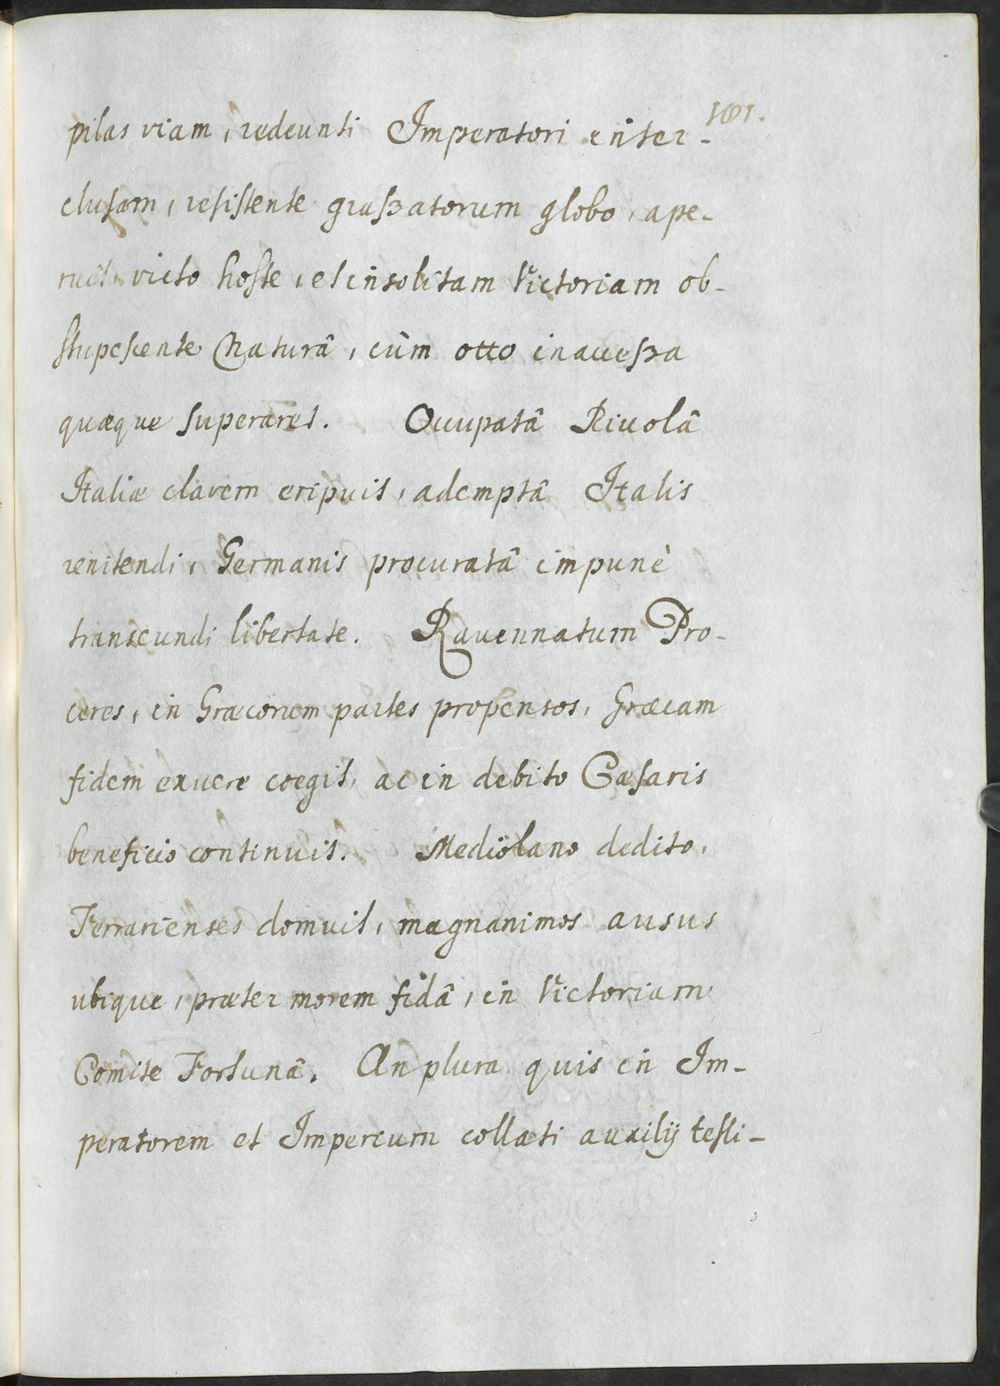 101.
pilas viam, redeunti Imperatori inter-
clusam, resistente grassatorum globo, ape-
ruit, victo hoste, et insolitam Victoriam ob-
stupescente Naturâ, cùm Otto inaccessa
quæque superaret. Occupatâ Rivolâ
Italiæ clavem eripuit, ademptâ Italis
renitendi, Germanis procuratâ impunè
transeundi libertate. Ravennatum Pro-
ceres, in Græcorum partes propensos, Græcam
fidem exuere coegit, ac in debito Cæsaris
beneficio continuit. Mediolano dedito,
Ferrarienses domuit, magnanimos ausus
ubique, præter morem fidâ, in Victoriam
Comite Fortunâ. An plura quis in Im-
peratorem et Imperium collati auxilij testi-